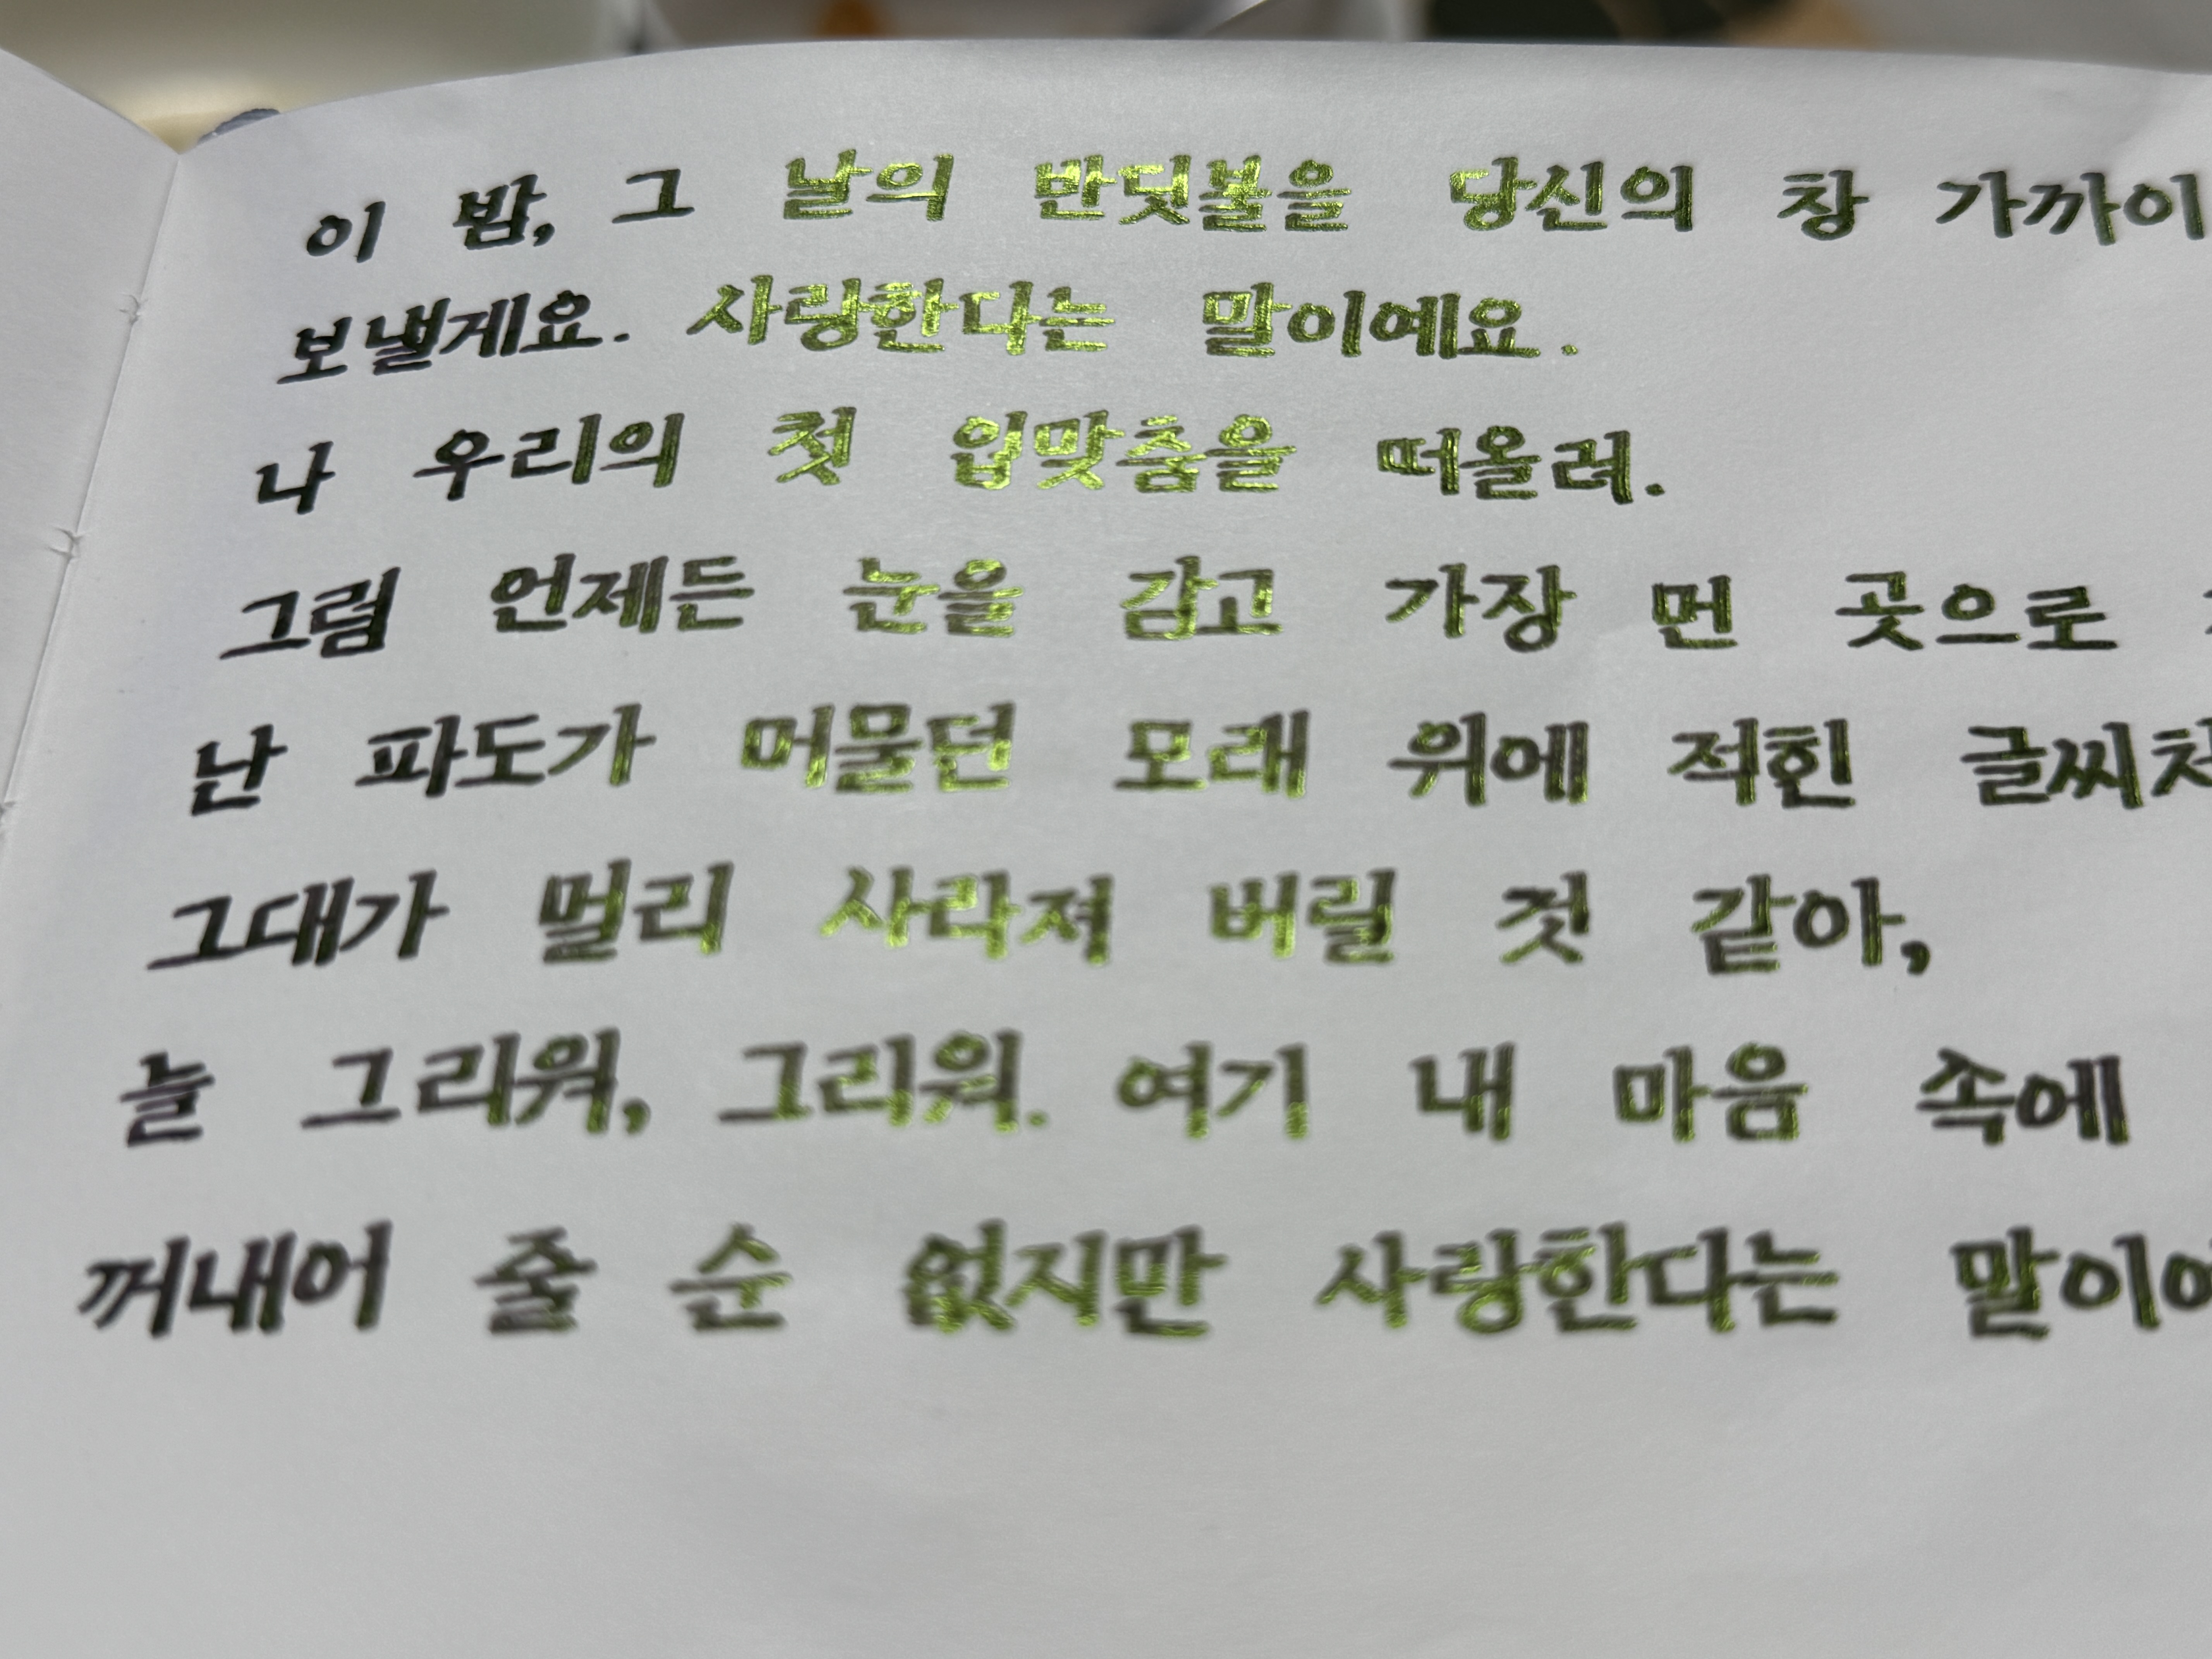 이 밤, 그 날의 반딧불을 당신의 창 가까이
보낼게요. 사랑한다는 말이예요.
나 우리의 첫 입맞춤을 떠올려.
그럼 언제든 눈을 감고 가장 먼 곳으로
난 파도가 머물던 모래 위에 적힌
그대가 멀리 사라져 버릴 것 같아,
늘 그리워, 그리워. 여기 내 마음 속에
꺼내어 줄 순 없지만 사랑한다는